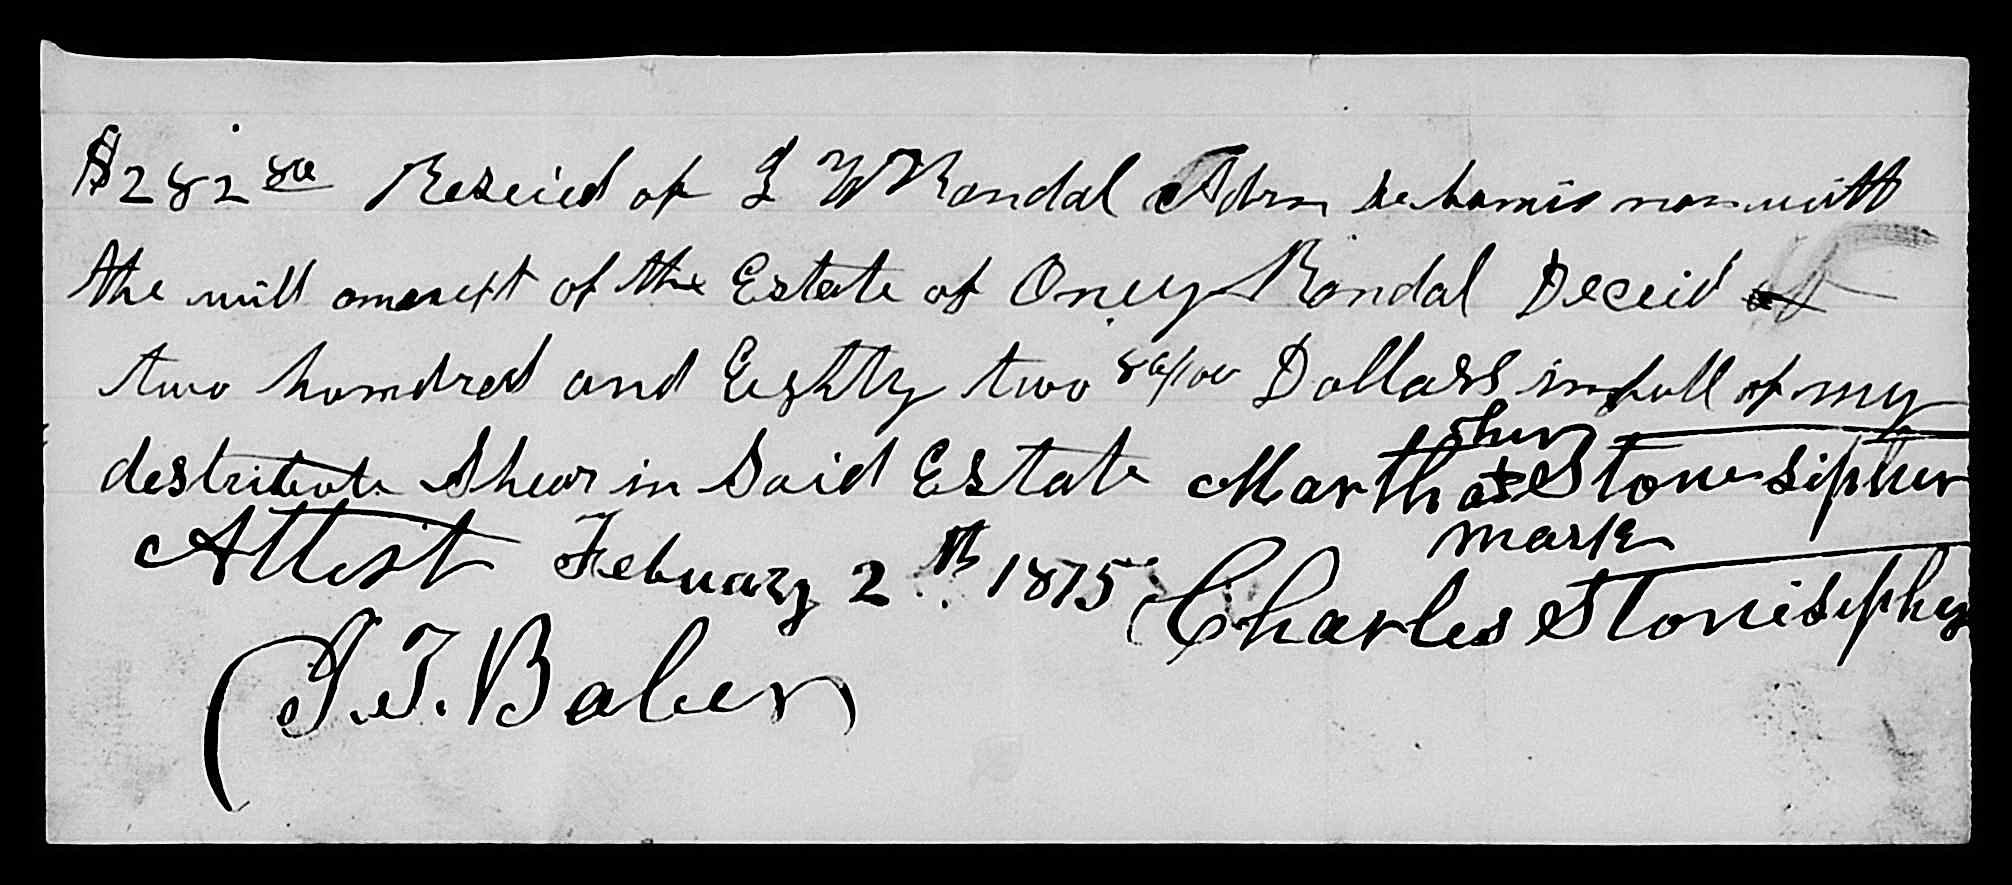 $282 80 Reseied of I W Randal Adm debonis non with
the will anext of the Estate of Oney Randal Deceid
two hundred and Eighty two 80/00 Dollars in full of my
destribute Shear in Said Estate Martha Stonesipher
her
mark
Attest Febuary 2th 1875 Charles Stonesipher
T. Baber